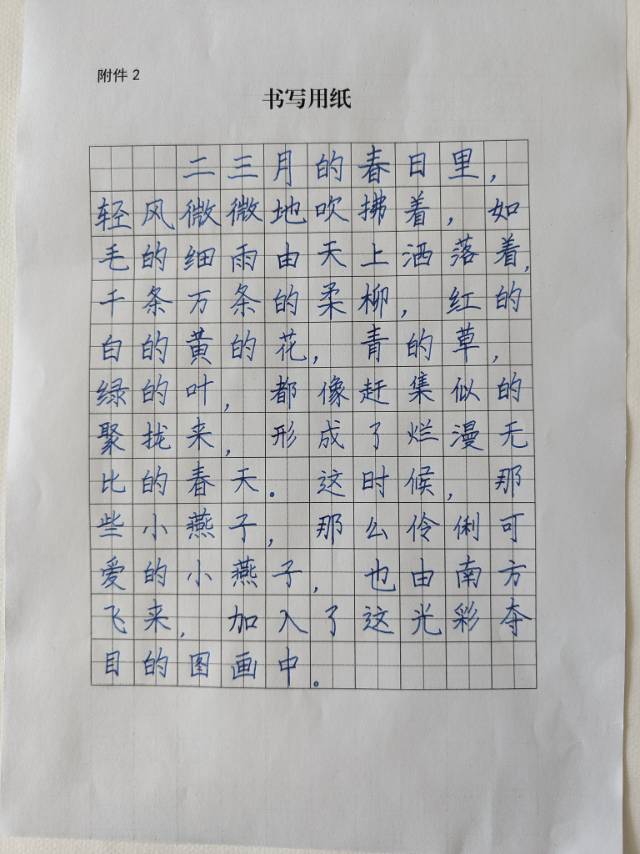 附件 2
书写用纸
二三月的春日里，
轻风微微地吹拂着，如
毛的细雨由天上洒落着，
千条万条的柔柳，红的
白的黄的花，青的草，
绿的叶，都像赶集似的
聚拢来，形成了烂漫无
比的春天。这时候，那
些小燕子，那么伶俐可
爱的小燕子，也由南方
飞来，加入了这光彩夺
目的图画中。